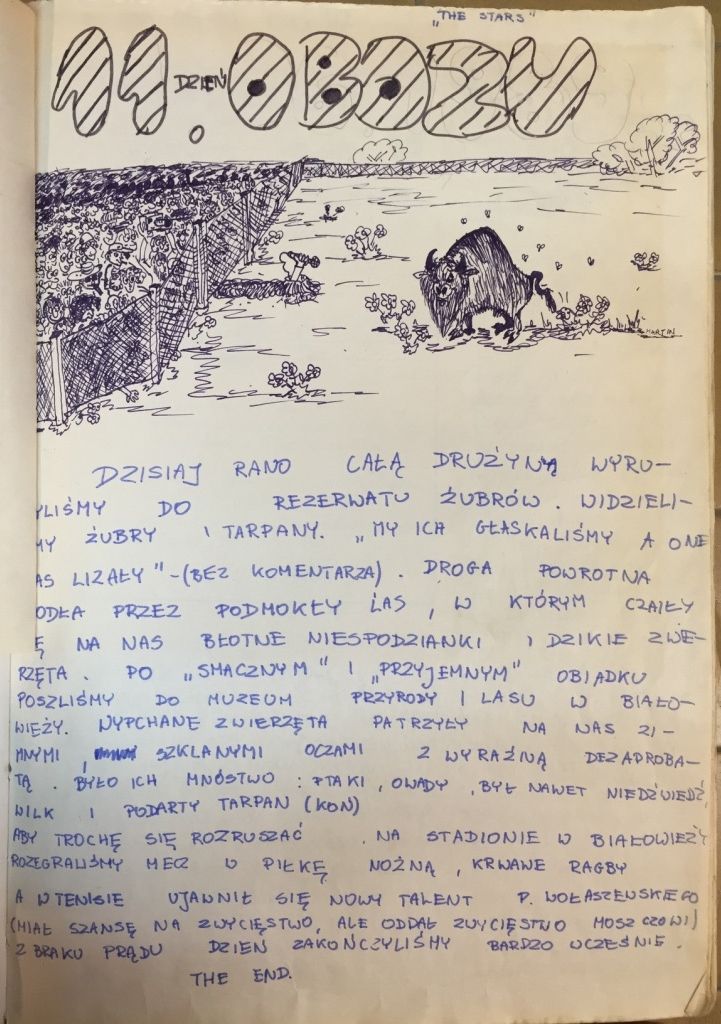 „THE STARS"
11 DZIEŃ. OBOZU
MARTIN
DZISIAJ RANO CAŁĄ DRUŻYNĄ WYRU-
YLIŚMY DO REZERWATU ŻUBRÓW. WIDZIELI-
MY ŻUBRY I TARPANY. „MY ICH GŁASKALIŚMY A ONE
AS LIZAŁY" - (BEZ KOMENTARZA). DROGA POWROTNA
ODŁA PRZEZ PODMOKŁY LAS, W KTÓRYM CZAIŁY
Ę NA NAS BŁOTNE NIESPODZIANKI I DZIKIE ZWIE-
RZĘTA. PO „SMACZNYM" I „PRZYJEMNYM" OBIADKU
POSZLIŚMY DO MUZEUM PRZYRODY I LASU W BIAŁO-
WIEŻY. WYPCHANE ZWIERZĘTA PATRZYŁY NA NAS ZI-
MNYMI, SZKLANYMI OCZAMI Z WYRAŹNĄ DEZAPROBA-
TĄ. BYŁO ICH MNÓSTWO: PTAKI, OWADY, BYŁ NAWET NIEDŹWIEDŹ,
WILK I PODARTY TARPAN (KOŃ)
ABY TROCHĘ SIĘ ROZRUSZAĆ. NA STADIONIE W BIAŁOWIEŻY
ROZEGRALIŚMY MECZ W PIŁKĘ NOŻNĄ, KRWAWE RAGBY
A W TENISIE UJAWNIŁ SIĘ NOWY TALENT P. WOŁASZEWSKIEGO
(MIAŁ SZANSĘ NA ZWYCIĘSTWO, ALE ODDAŁ ZWYCIĘSTWO MOSZCZOWI)
Z BRAKU PRĄDU DZIEŃ ZAKOŃCZYLIŚMY BARDZO WCZEŚNIE.
THE END.